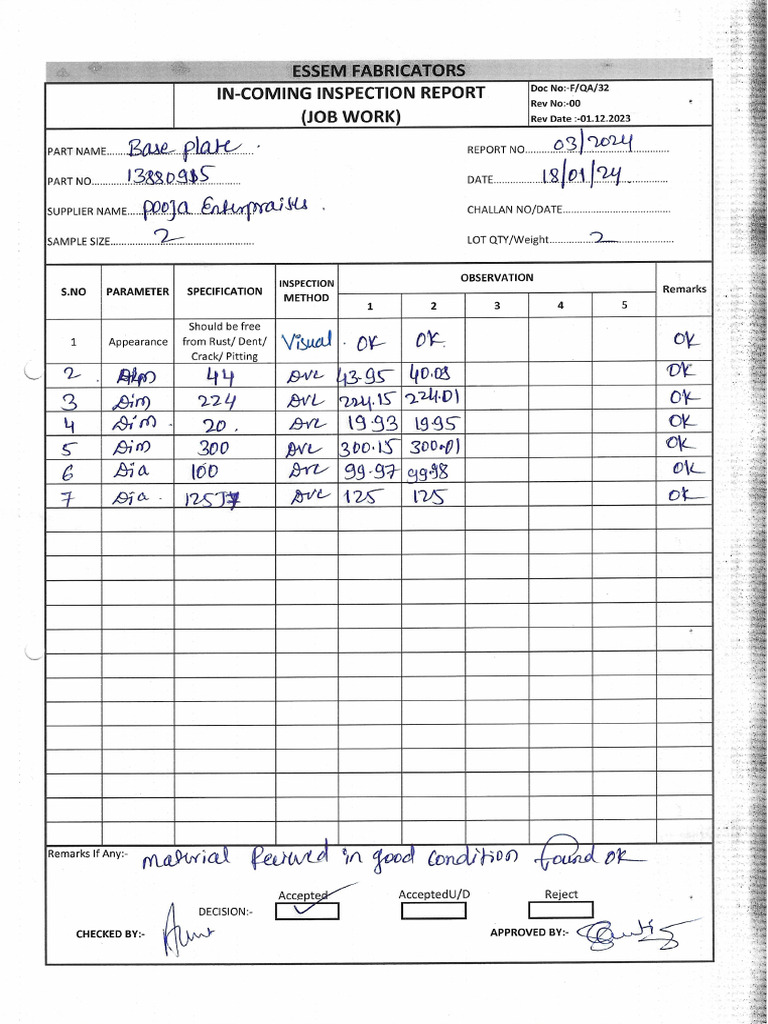 ESSEM FABRICATORS
IN-COMING INSPECTION REPORT
(JOB WORK)
Doc No:-F/QA/32
Rev No:-00
Rev Date :-01.12.2023
PART NAME Base plate
REPORT NO 03/2024
PART NO 13880915
DATE 18/01/24
SUPPLIER NAME pooja Enterpraises
CHALLAN NO/DATE
SAMPLE SIZE 2
LOT QTY/Weight 2
S.NO PARAMETER SPECIFICATION INSPECTION METHOD OBSERVATION Remarks
1 2 3 4 5
1 Appearance Should be free from Rust/ Dent/ Crack/ Pitting Visual OK OK OK
2 Dim 44 DVC 43.95 40.03 OK
3 Dim 224 DVC 224.15 224.01 OK
4 Dim 20 DVC 19.93 19.95 OK
5 Dim 300 DVC 300.15 300.01 OK
6 Dia 100 DVC 99.97 99.98 OK
7 Dia 125 DVC 125 125 OK
Remarks If Any:- material Received in good condition found OK
Accepted AcceptedU/D Reject
DECISION:-
CHECKED BY:- APPROVED BY:-